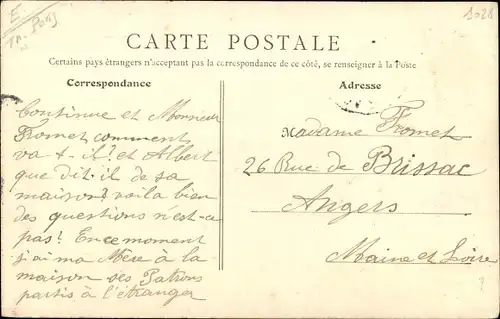 CARTE POSTALE
Certains pays étrangers n'acceptant pas la correspondance de ce côté, se renseigner à la Poste
Correspondance
Continue et Monsieur
Fromet, comment
va t-il? et Albert
que dit-il de sa
maison? voila bien
des questions n'est-ce
pas? En ce moment
j'ai ma Mère à la
maison ses Patrons
partis à l'étranger
Adresse
Madame Fromet
26 Rue de Brissac
Angers
Maine et Loire